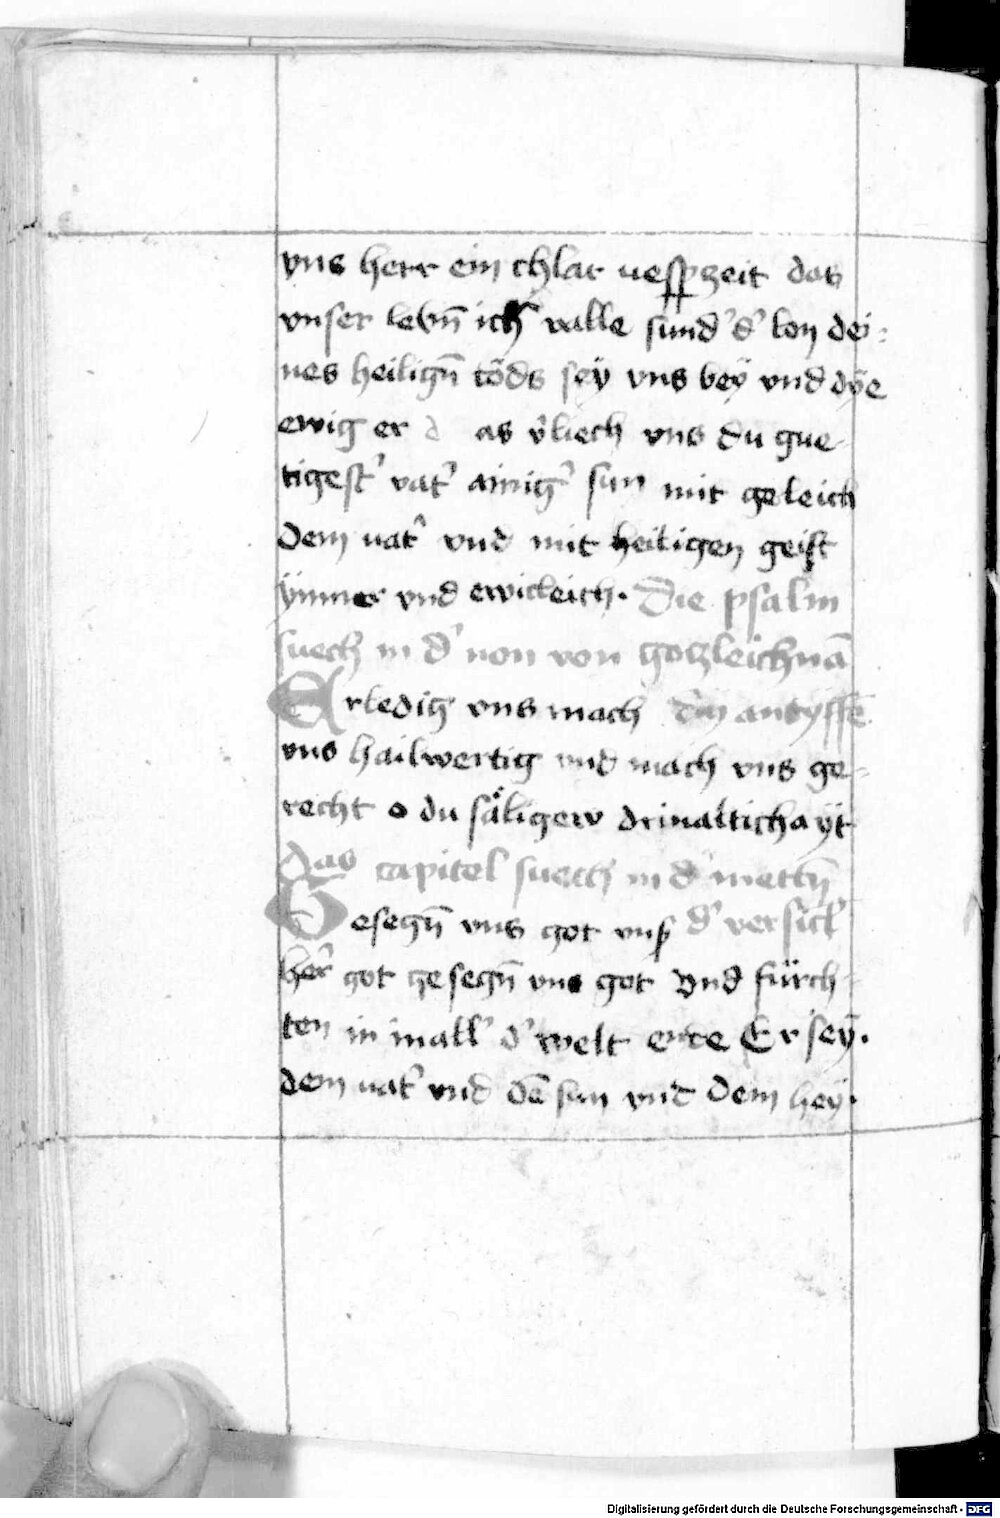 vns herr ein chlar vespzeit das
vnser lebñ icht valle sund' d' lon dei-
nes heiligñ tods sey vns bey vnd dye
ewig er d as v'liech vns du gue-
tigest' vat' ainig' sun mit geleich
dem vat' vnd mit heiligen geist
ymmer vnd ewicleich. Die psalm
suech in d' non von gotzleichnā
Erledig vns mach die antyffē
vns hailwertig vnd mach vns ge-
recht o du såligew drinaltichayt
das capitel suech in d' mettñ
Gesegñ vns got vns' d' versick'
her' got gesegñ vns got vnd fürch-
ten in in all' d' welt ente Er sey.
dem vat' vnd dē sun vnd dem hey.
Digitalisierung gefördert durch die Deutsche Forschungsgemeinschaft - DFG